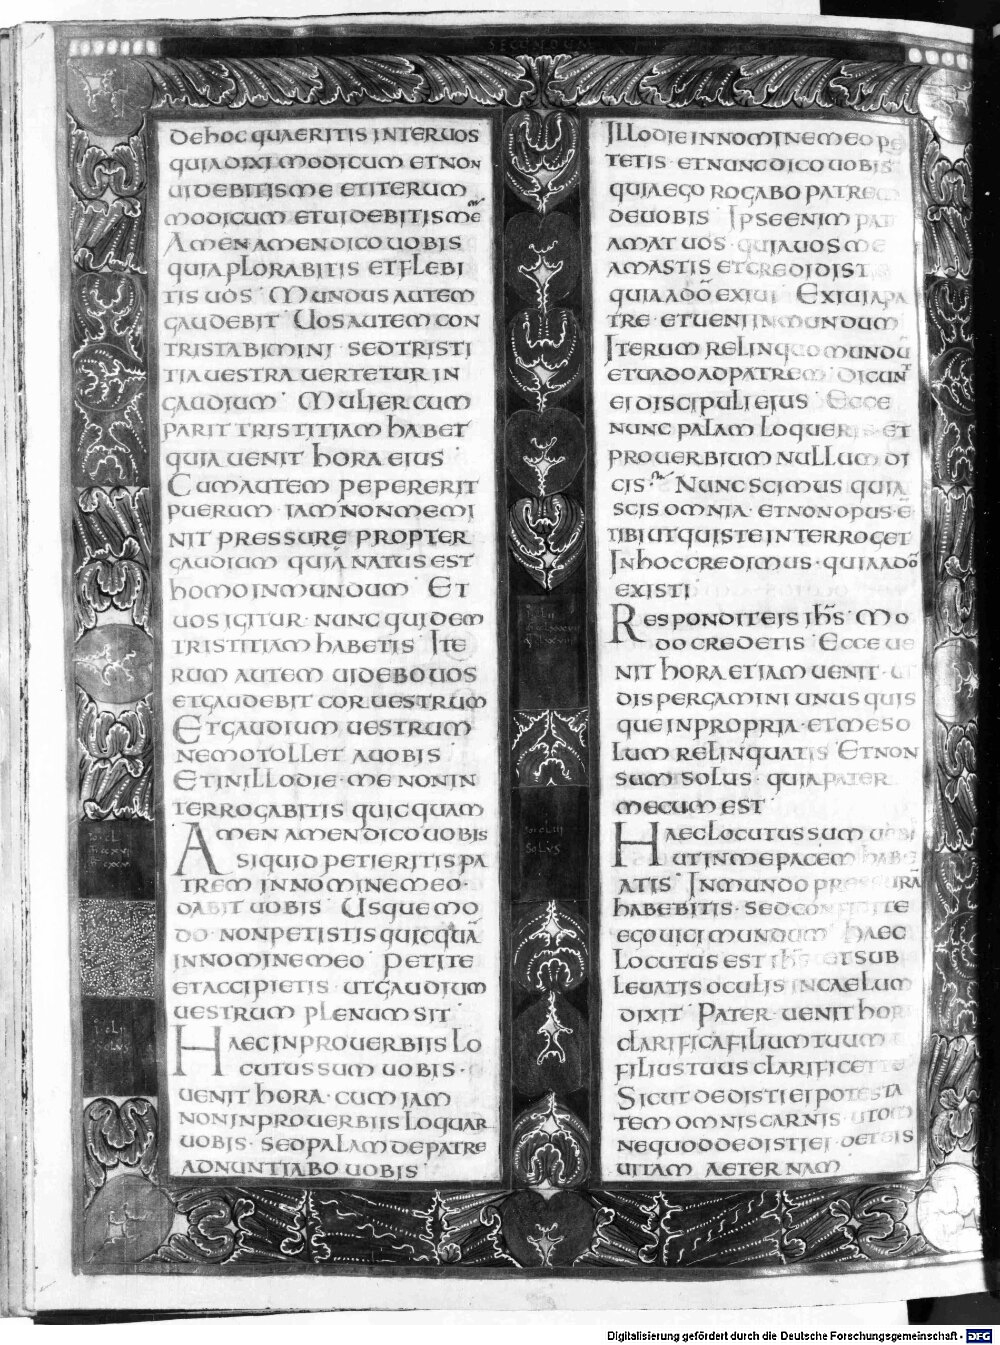 SECUNDUM
DEHOC QUAERITIS INTERUOS
QUIA DIXI MODICUM ETNON
UIDEBITISME ETITERUM
MODICUM ETUIDEBITISME
AMEN AMENDICOUOBIS
QUIAPLORABITIS ETFLEBI
TIS UOS MUNDUS AUTEM
GAUDEBIT UOSAUTEM CON
TRISTABIMINI SEDTRISTI
TIAUESTRA UERTETUR IN
GAUDIUM MULIER CUM
PARIT TRISTITIAM HABET
QUIAUENIT HORA EIUS
CUMAUTEM PEPERERIT
PUERUM IAMNONMEMI
NIT PRESSURE PROPTER
GAUDIUM QUIA NATUSEST
HOMOINMUNDUM ET
UOS IGITUR NUNC QUIDEM
TRISTITIAM HABETIS ITE
RUM AUTEM UIDEBOUOS
ETGAUDEBIT COR UESTRUM
ETGAUDIUM UESTRUM
NEMOTOLLET AUOBIS
ETINILLODIE ME NONIN
TERROGABITIS QUICQUAM
AMEN AMENDICOUOBIS
SIQUID PETIERITIS PA
TREM INNOMINEMEO
DABIT UOBIS USQUEMO
DO NONPETISTIS QUICQUĀ
INNOMINEMEO PETITE
ETACCIPIETIS UTGAUDIUM
UESTRUM PLENUM SIT
HAECINPROUERBIIS LO
CUTUSSUM UOBIS
UENIT HORA CUM IAM
NONINPROUERBIIS LOQUAR
UOBIS SEDPALAMDEPATRE
ADNUNTIABO UOBIS
ILLODIE INNOMINEMEO PE
TETIS ETNUNCDICO UOBIS
QUIAEGO ROGABO PATREM
DEUOBIS IPSEENIM PAT
AMAT UOS QUIAUOSME
AMASTIS ETCREDIDIST
QUIAADŌ EXIUI EXIUIAPA
TRE ETUENIINMUNDUM
ITERUM RELINQUOMUNDŪ
ETUADOADPATREM DICUNT
EIDISCIPULI EIUS ECCE
NUNC PALAM LOQUERIS ET
PROUERBIUM NULLUM DI
CIS NUNC SCIMUS QUIA
SCIS OMNIA ETNONOPUS Ē
TIBIUTQUISTEINTERROGET
INHOCCREDIMUS QUIAADŌ
EXISTI
RESPONDITEIS IHS MO
DOCREDETIS ECCEUE
NIT HORA ETIAM UENIT U
DISPERGAMINI UNUSQUIS
QUEINPROPRIA ETMESO
LUM RELINQUATIS ETNON
SUM SOLUS QUIAPATER
MECUM EST
HAECLOCUTUSSUM UOBI
UTINMEPACEM HABE
ATIS INMUNDO PRESSURĀ
HABEBITIS SEDCONFIDITE
EGOUICIMUNDUM HAEC
LOCUTUS EST IHS ETSUB
LEUATIS OCULIS INCAELUM
DIXIT PATER UENIT HOR
CLARIFICAFILIUMTUUM
FILIUSTUUS CLARIFICETTE
SICUTDEDISTIEIPOTESTA
TEMOMNISCARNIS UTOM
NEQUODDEDISTIEI DETEIS
UITAM AETERNAM
Digitalisierung gefördert durch die Deutsche Forschungsgemeinschaft - DFG